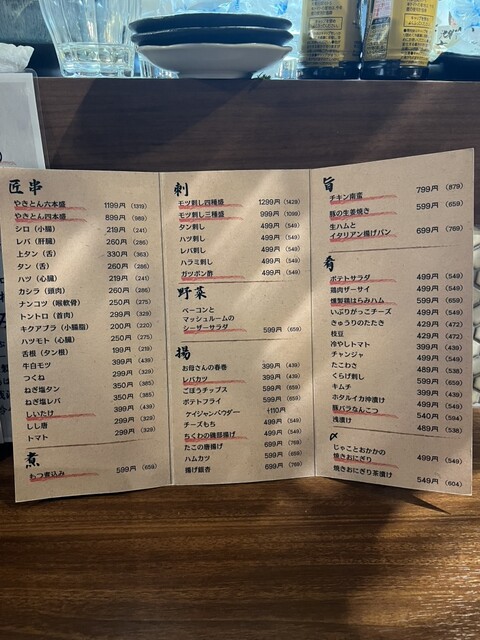 匠串
やきとん六本盛 1199円 (1319)
やきとん四本盛 899円 (989)
シロ (小腸) 219円 (241)
レバ (肝臓) 260円 (286)
上タン (舌) 330円 (363)
タン (舌) 260円 (286)
ハツ (心臓) 219円 (241)
カシラ (頭肉) 260円 (286)
ナンコツ (喉軟骨) 250円 (275)
トントロ (首肉) 299円 (329)
キクアブラ (小腸脂) 200円 (220)
ハツモト (心臓元) 250円 (275)
舌根 (タン根) 199円 (219)
牛白モツ 399円 (439)
つくね 299円 (329)
ねぎ塩タン 350円 (385)
ねぎ塩レバ 350円 (385)
しいたけ 399円 (439)
しし唐 299円 (329)
トマト 299円 (329)
煮
もつ煮込み 599円 (659)
刺
モツ刺し四種盛 1299円 (1429)
モツ刺し三種盛 999円 (1099)
タン刺し 499円 (549)
ハツ刺し 499円 (549)
レバ刺し 499円 (549)
ハラミ刺し 499円 (549)
ガツポン酢 499円 (549)
野菜
ベーコンと
マッシュルームの
シーザーサラダ 599円 (659)
揚
お母さんの春巻 399円 (439)
レバカツ 399円 (439)
ごぼうチップス 599円 (659)
ポテトフライ 599円 (659)
ケイジャンパウダー +110円
チーズもち 499円 (549)
ちくわの磯部揚げ 499円 (549)
たこの唐揚げ 699円 (769)
ハムカツ 599円 (659)
揚げ銀杏 699円 (769)
旨
チキン南蛮 799円 (879)
豚の生姜焼き 599円 (659)
生ハムと
イタリアン揚げパン 699円 (769)
肴
ポテトサラダ 499円 (549)
鶏肉ザーサイ 499円 (549)
燻製鶏はらみハム 599円 (659)
いぶりがっこチーズ 499円 (549)
きゅうりのたたき 429円 (472)
枝豆 429円 (472)
冷やしトマト 399円 (439)
チャンジャ 499円 (549)
たこわさ 489円 (538)
くらげ刺し 599円 (659)
キムチ 399円 (439)
ホタルイカ沖漬け 499円 (549)
豚バラなんこつ 540円 (594)
浅漬け 489円 (538)
〆
じゃことおかかの
焼きおにぎり 499円 (549)
焼きおにぎり茶漬け 549円 (604)